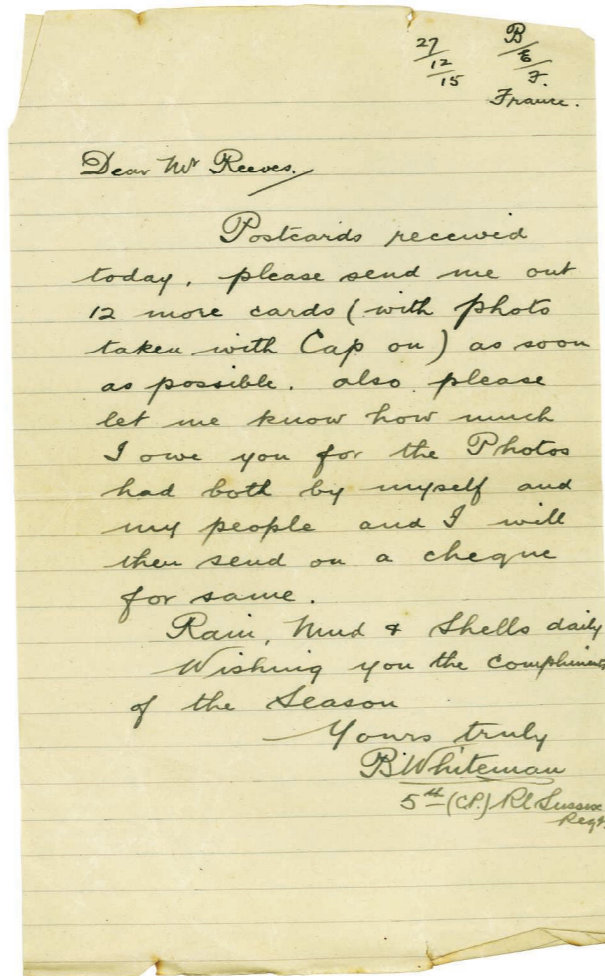 27/12/15
B/E/F.
France.
Dear Mr Reeves.
Postcards received
today, please send me out
12 more cards (with photo
taken with Cap on) as soon
as possible. also please
let me know how much
I owe you for the Photos
had both by myself and
my people and I will
then send on a cheque
for same.
Rain, Mud & Shells daily
Wishing you the compliments
of the Season
Yours truly
B Whiteman
5th (C.P.) Rl Sussex
Regt.